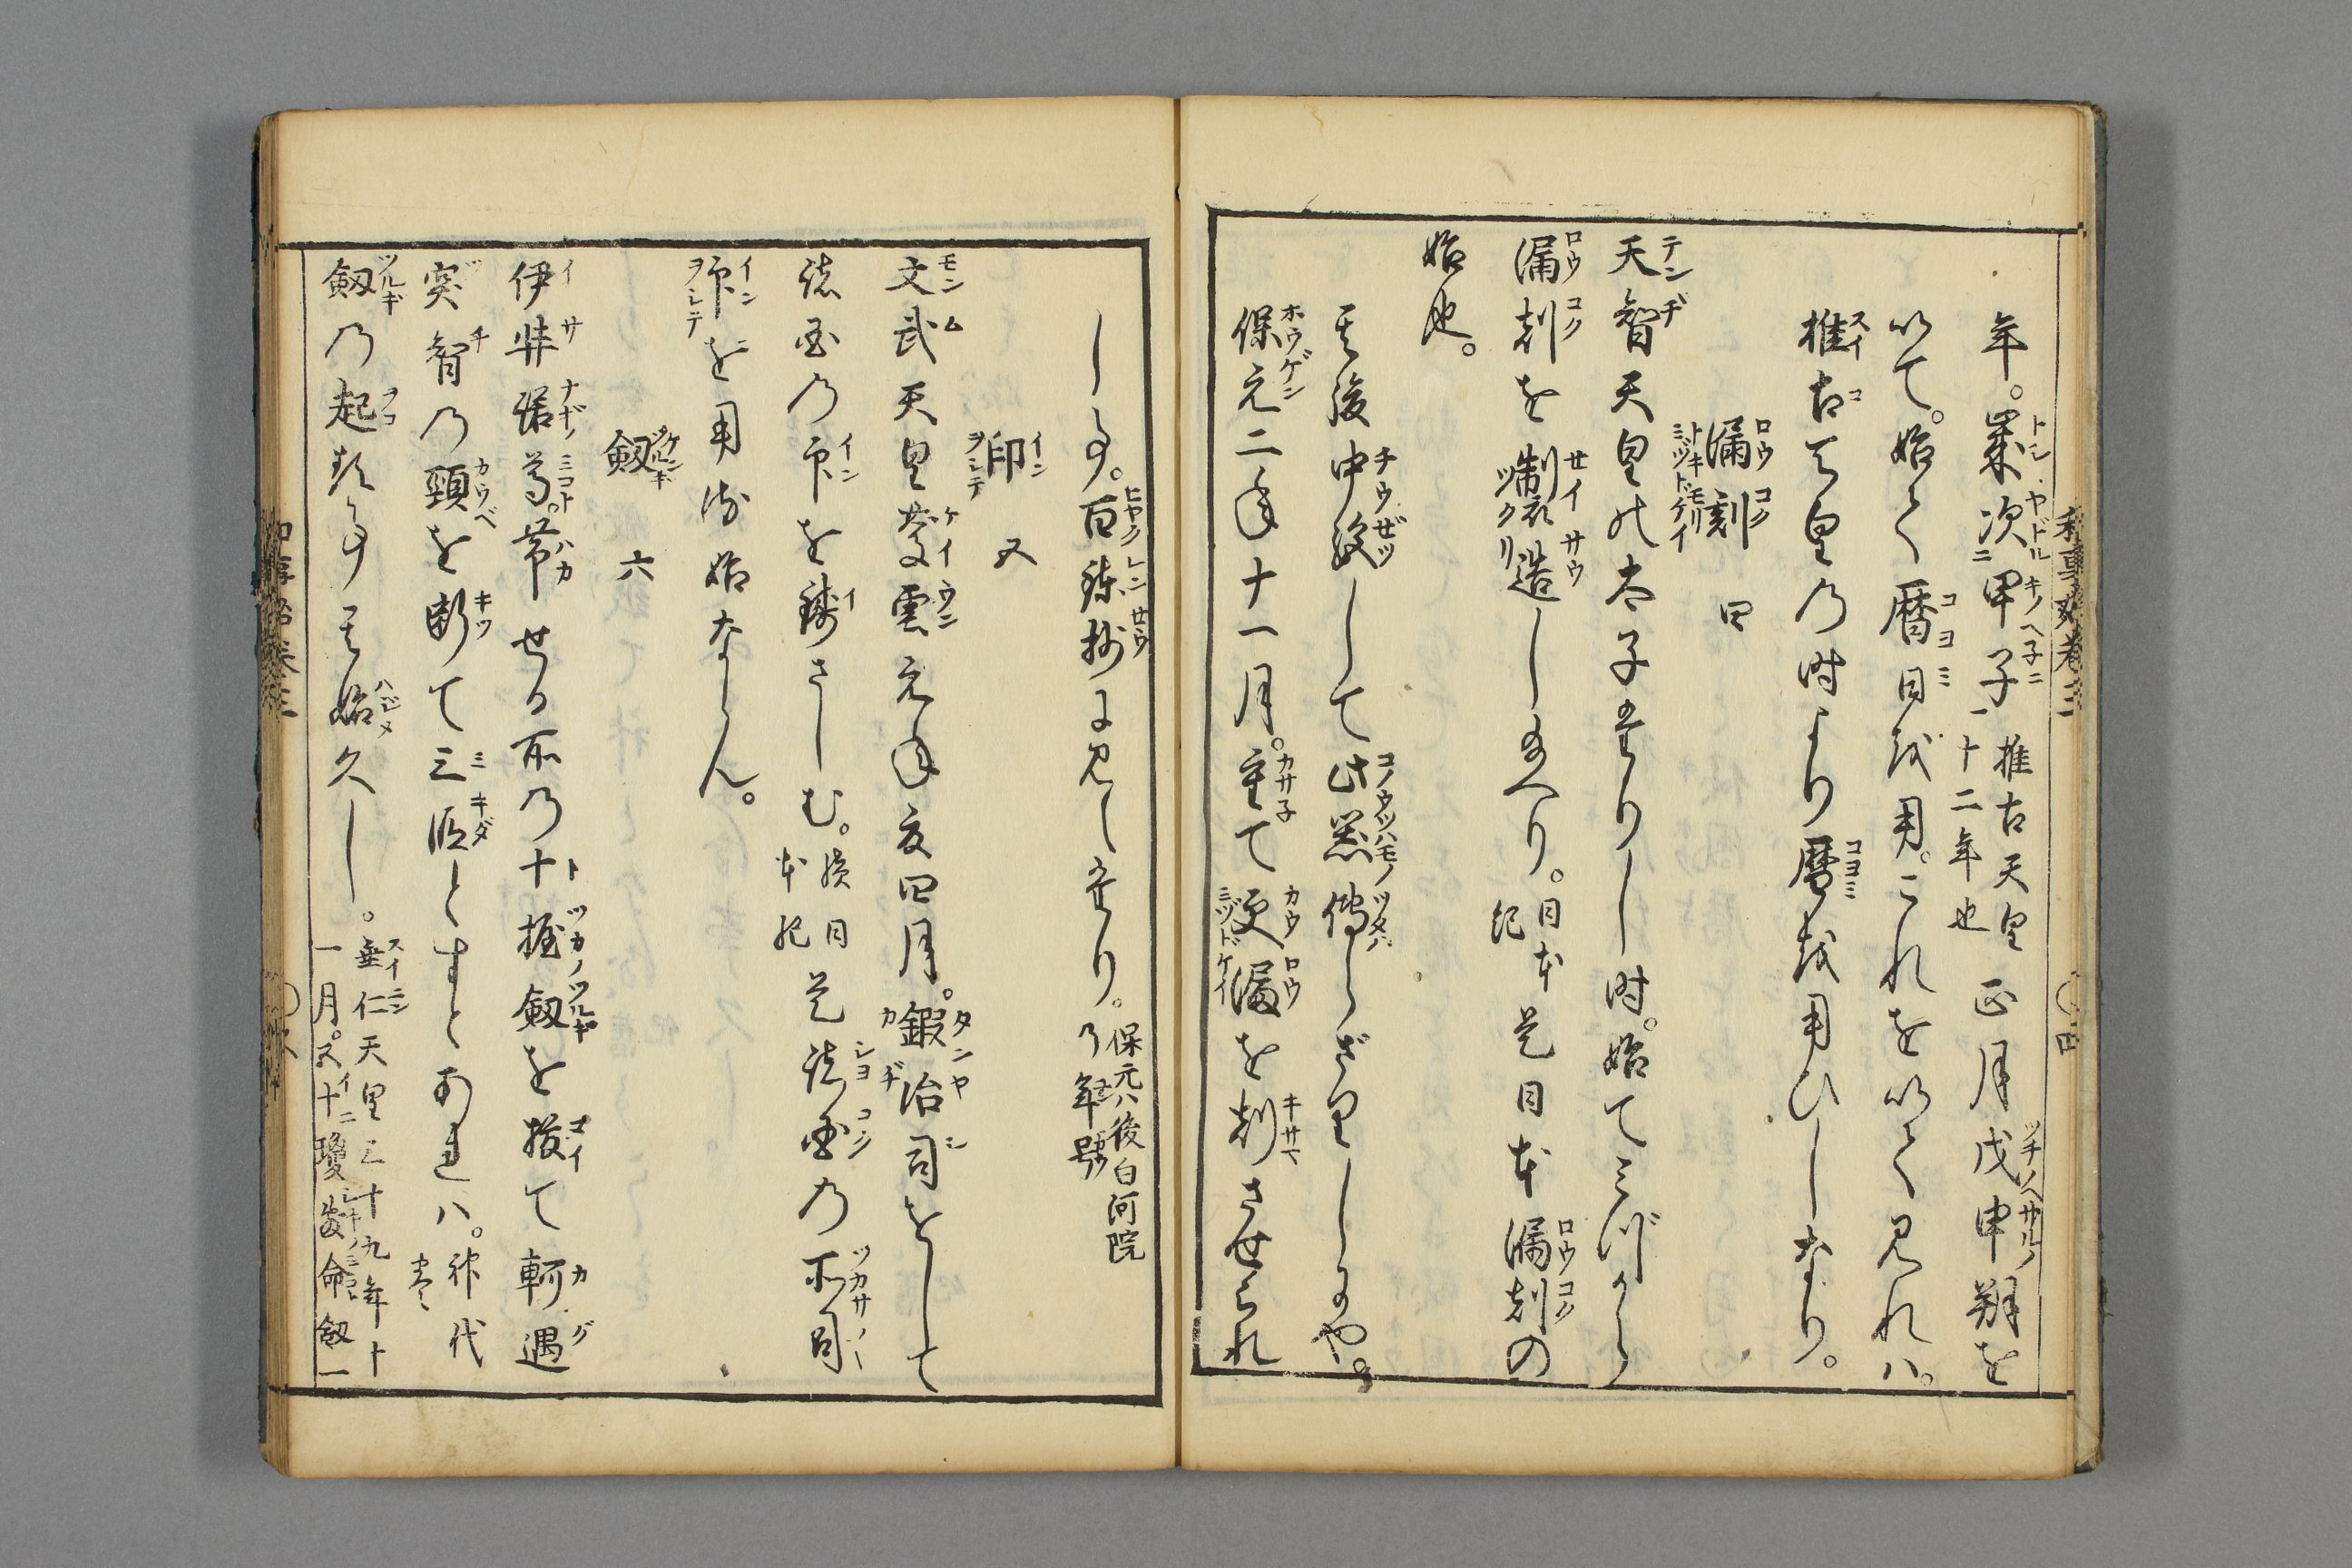 年。歳次甲子推古天皇一十二年也正月戊申朔を
以て。始て暦日を用。これを以て見れハ。
推古天皇の時より暦を用ひしなり。
漏刻 四
天智天皇の太子たりし時。始てミづから
漏刻を製造し給へり。日本紀是日本漏刻の
始也。
其後中絶して此器傳ハらざりしにや。
保元二年十一月。重て更漏を刻させられ
し事。百錬抄に見へたり。保元ハ後白河院の年號
印 五
文武天皇慶雲元年夏四月。鍛冶司をして
諸国の印を鋳さしむ。續日本紀是諸国の所司
印を用る始ならん。
劔 六
伊弉諾尊。帯せる所の十握劔を抜て軻遇
突智の頸を断て三段とすとあれハ。神代巻
劔の起れる事其始久し。垂仁天皇三十九年十一月。五十瓊敷命劔一